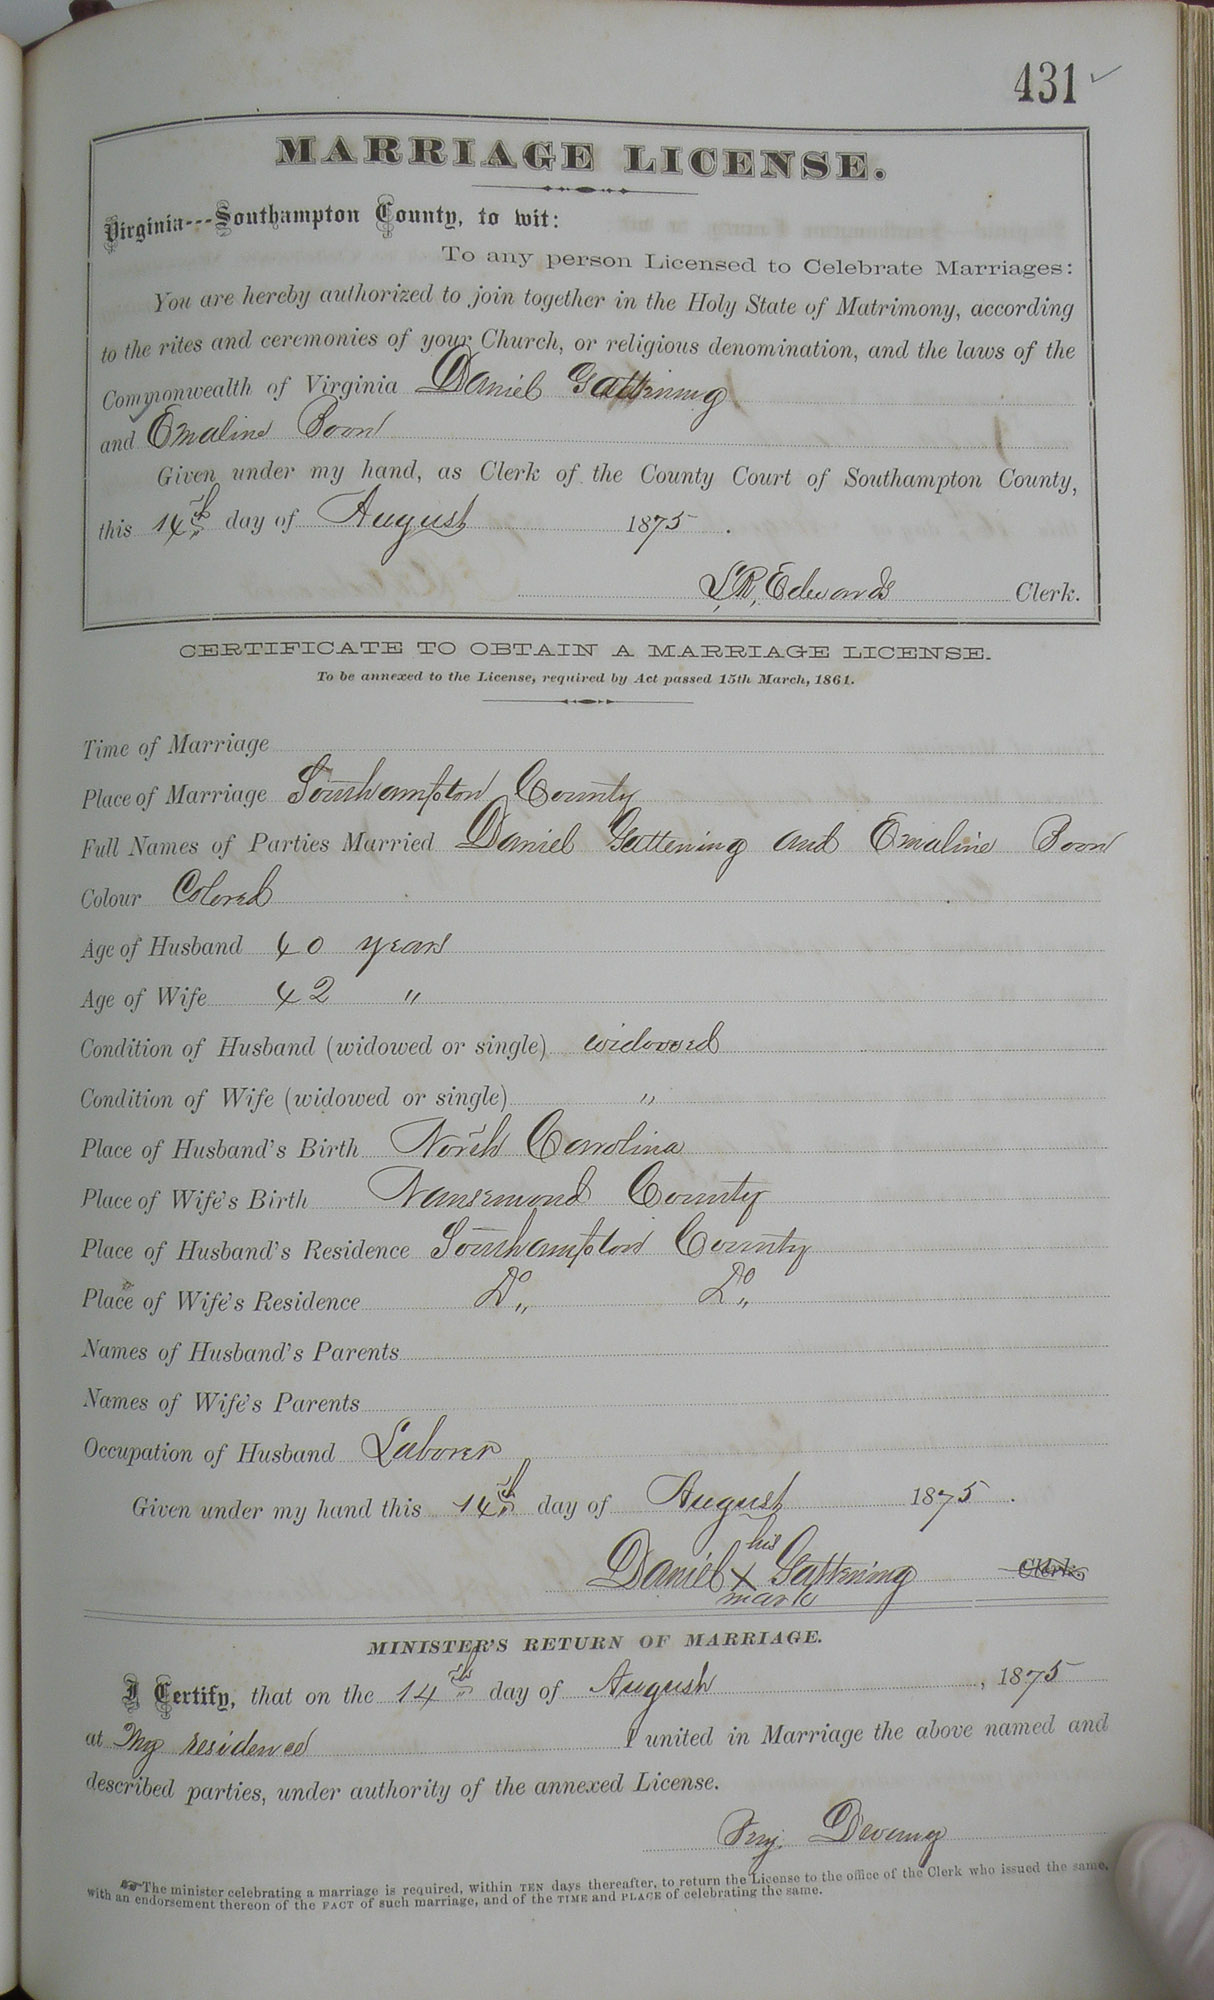 431
MARRIAGE LICENSE.
Virginia---Southampton County, to wit:
To any person Licensed to Celebrate Marriages:
You are hereby authorized to join together in the Holy State of Matrimony, according
to the rites and ceremonies of your Church, or religious denomination, and the laws of the
Commonwealth of Virginia Daniel Gattening
and Emaline Boon
Given under my hand, as Clerk of the County Court of Southampton County,
this 14th day of August 1875.
L. R. Edwards Clerk.
CERTIFICATE TO OBTAIN A MARRIAGE LICENSE.
To be annexed to the License, required by Act passed 15th March, 1861.
Time of Marriage
Place of Marriage Southampton County
Full Names of Parties Married Daniel Gattening and Emaline Boon
Colour Colored
Age of Husband 40 years
Age of Wife 42 "
Condition of Husband (widowed or single) widowed
Condition of Wife (widowed or single) "
Place of Husband's Birth North Carolina
Place of Wife's Birth Nansemond County
Place of Husband's Residence Southampton County
Place of Wife's Residence Do Do
Names of Husband's Parents
Names of Wife's Parents
Occupation of Husband Laborer
Given under my hand this 14th day of August 1875.
his
Daniel X Gattening Clerk.
mark
MINISTER'S RETURN OF MARRIAGE.
I Certify, that on the 14th day of August, 1875
at My residence I united in Marriage the above named and
described parties, under authority of the annexed License.
The minister celebrating a marriage is required, within TEN days thereafter, to return the License to the office of the Clerk who issued the same,
with an endorsement thereon of the FACT of such marriage, and of the TIME and PLACE of celebrating the same.